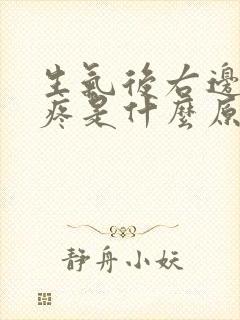 生氣後右邊
疼是什麼原
靜舟小妖